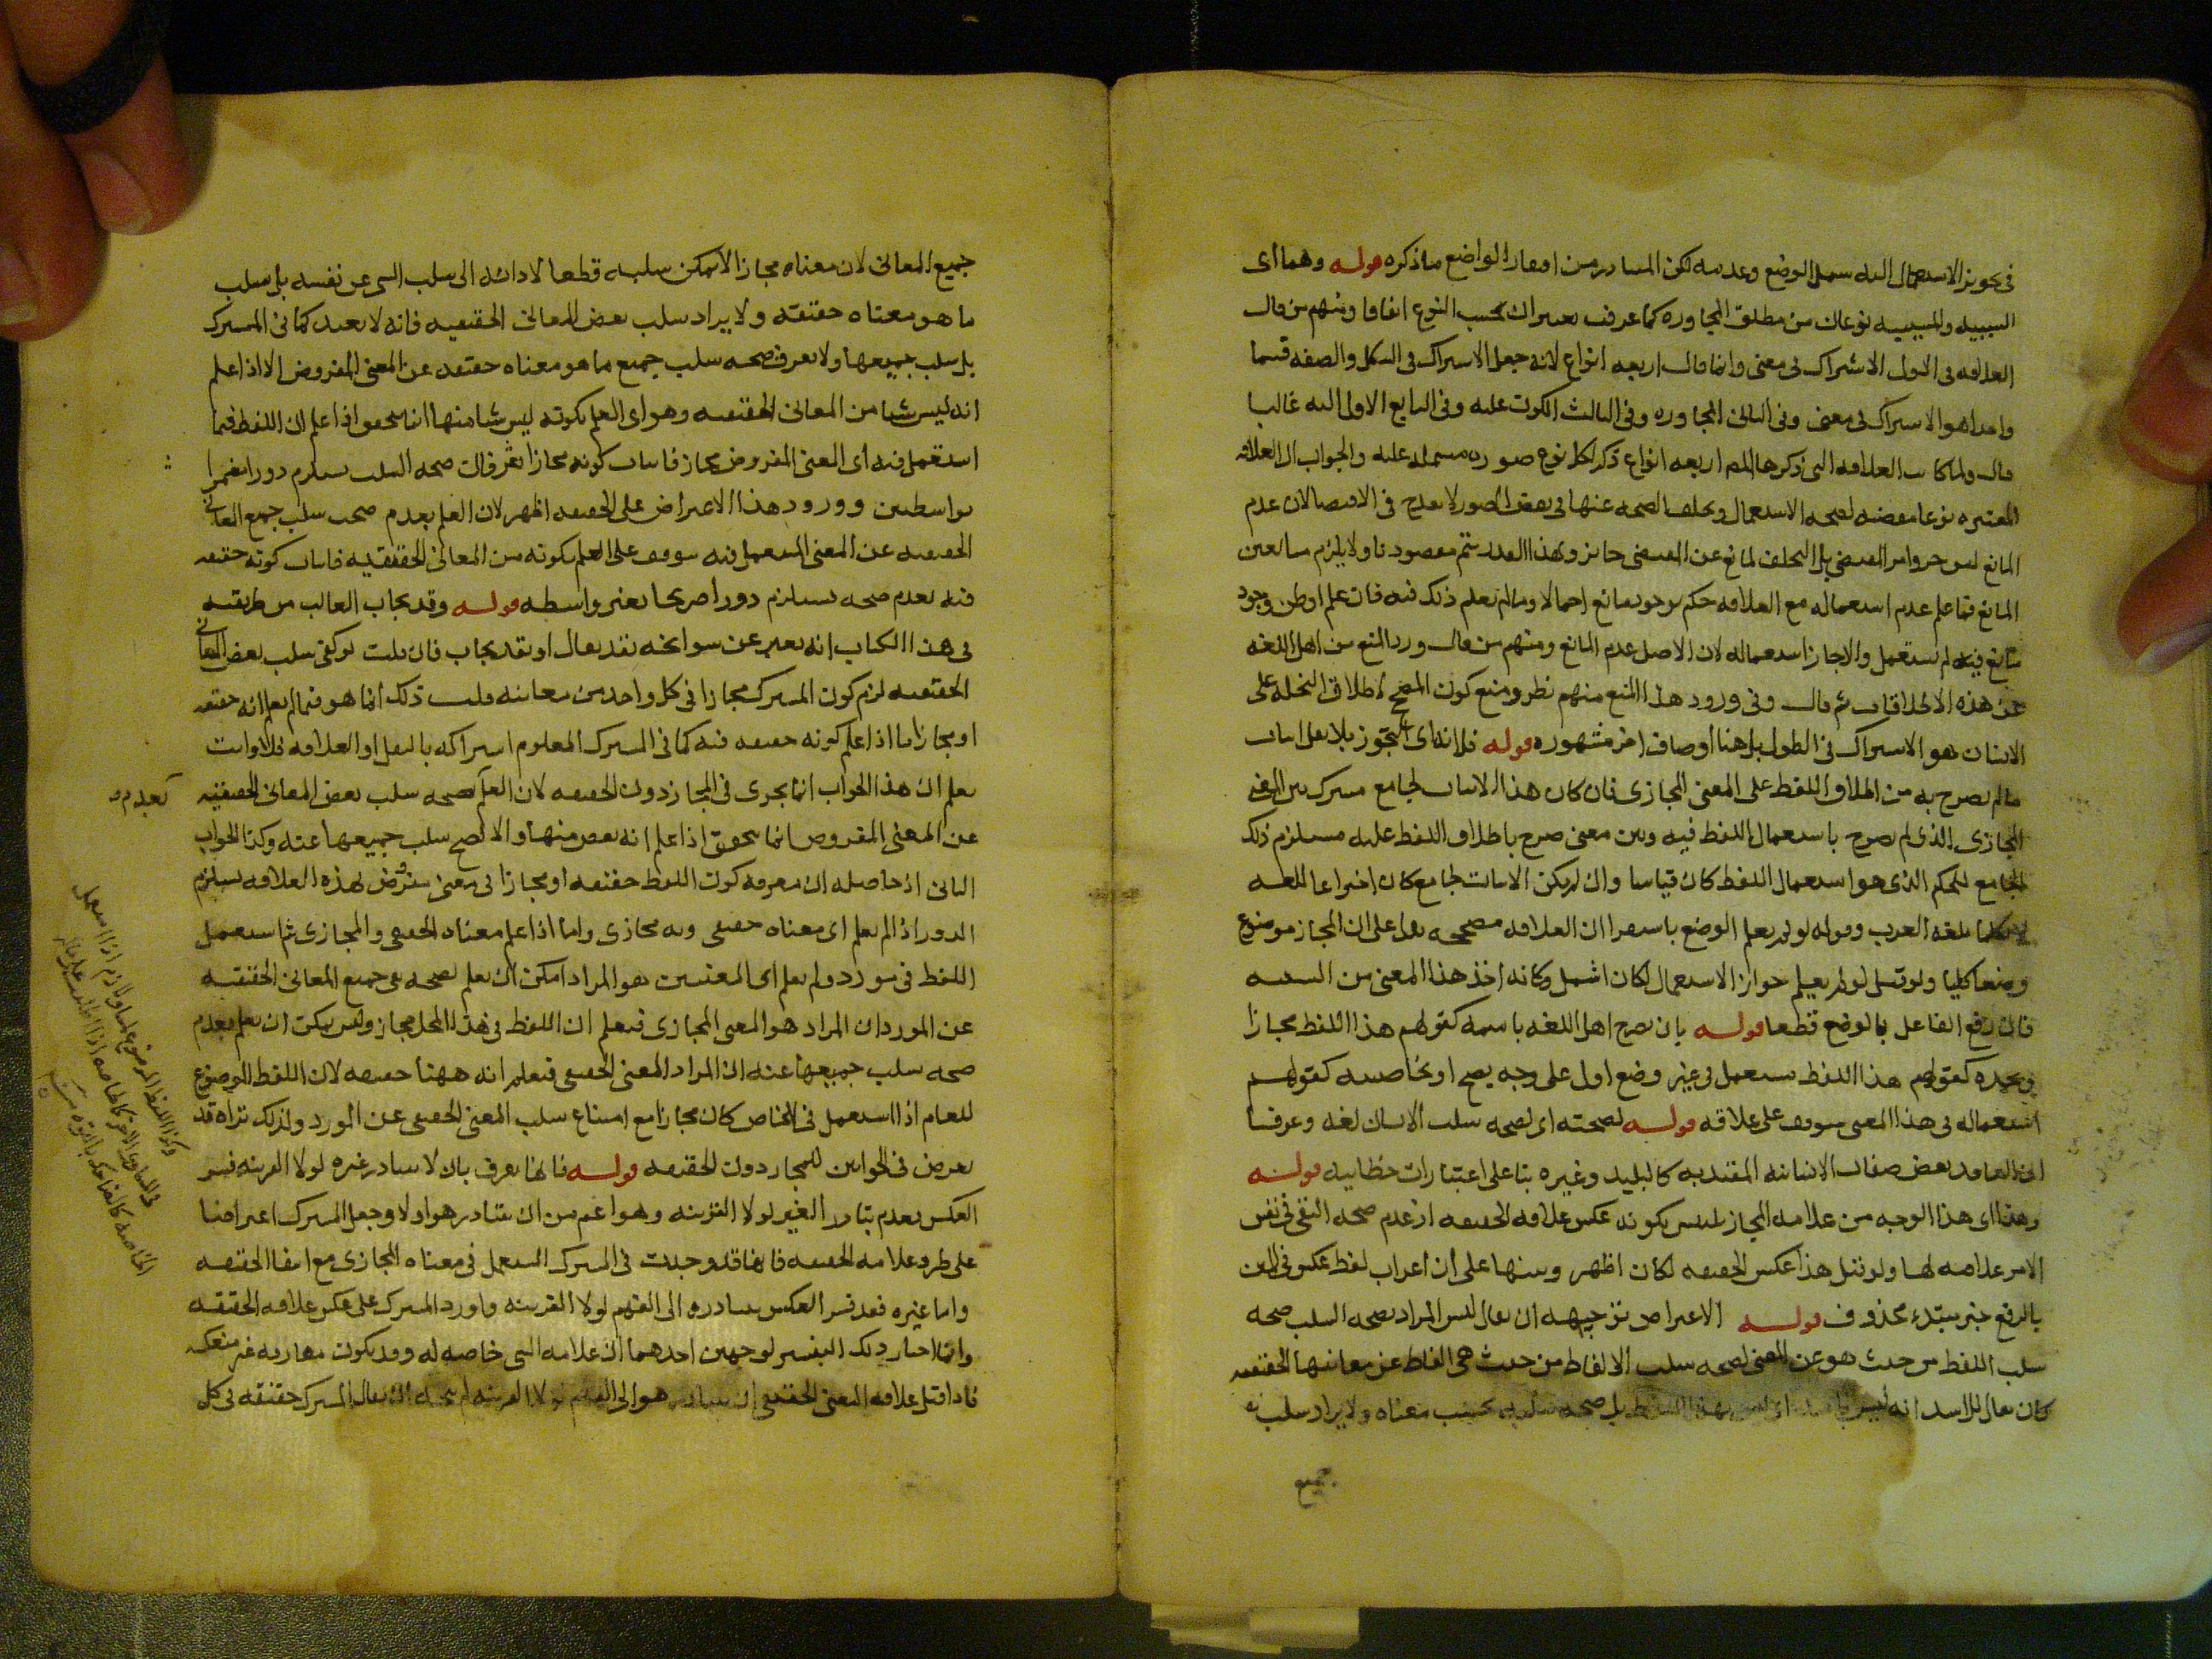 في تجويز الاستعمال اليه يشمل الوضع وعدمه لكن المتبادر من اعتبار الواضع ما ذكره قوله وهما اى
السببية والمسببية نوعان من مطلق المجاورة كما عرفت يعتبران بحسب النوع اتفاقا ومنهم من قال
العلاقة في الاول الاشتراك في معنى وانما قال اربعة انواع لانه جعل الاشتراك في الشكل والصفة قسما
واحدا هو الاشتراك في معنى وفي الثاني المجاورة وفي الثالث الكون عليه وفي الرابع الاول اليه غالبا
قال ولما كانت العلاقة التي ذكرها المص اربعة انواع ذكر لكل نوع صورة مشتملة عليه والجواب ان العلاقة
المعتبرة نوعا مقتضية لصحة الاستعمال وتخلف الصحة عنها في بعض الصور لا يقدح في الاقتضا لان عدم
المانع ليس جزوا من المقتضي بل التخلف لمانع عن المقتضي جائز وبهذا القدر يتم مقصودنا ولا يلزم منا تعيين
المانع فما علم عدم استعماله مع العلاقة حكم بوجود مانع اجمالا وما لم يعلم ذلك فيه فان علم او ظن وجود
مانع فيه لم يستعمل والا جاز استعماله لان الاصل عدم المانع ومنهم من قال ورد المنع من اهل اللغة
عن هذه الاطلاقات ثم قال وفي ورود هذا المنع منهم نظر ومنع كون المصحح لاطلاق النخلة على
الانسان هو الاشتراك في الطول بل هنا اوصاف اخر مشهورة قوله فلانه اى التجوز بلا نقل اثبات
ما لم يصرح به من اطلاق اللفظ على المعنى المجازى فان كان هذا الاثبات لجامع مشترك بين المعنى
المجازى الذى لم يصرح باستعمال اللفظ فيه وبين معنى صرح باطلاق اللفظ عليه مستلزم ذلك
الجامع للحكم الذى هو استعمال اللفظ كان قياسا وان لم يكن الاثبات لجامع كان اختراعا للغة
لا تكلما بلغة العرب وقوله لو لم يعلم الوضع باستقرا ان العلاقة مصححة يدل على ان المجاز موضوع
وضعا كليا ولو قيل لو لم يعلم جواز الاستعمال لكان اشمل وكانه اخذ هذا المعنى من
فان رفع الفاعل بالوضع قطعا قوله بان يصرح اهل اللغة باسمه كقولهم هذا اللفظ مجاز
وبحده كقولهم هذا اللفظ مستعمل في غير وضع اول على وجه يصح او بخاصيته كقولهم
استعماله في هذا المعنى يتوقف على علاقة قوله لصحته اى لصحة سلب الانسان لغة وعرفا
الفاقد بعض صفات الانسانية المعتد به كالبليد وغيره بنا على اعتبارات خطابية قوله
وهذا اى هذا الوجه من علامة المجاز يلتبس بكونه عكس علامة الحقيقة اذ عدم صحة النفي في نفس
الامر علامة لها ولو قيل هذا عكس الحقيقة لكان اظهر وينبهنا على ان اعراب لفظ عكس في المتن
بالرفع خبر مبتدء محذوف قوله الاعتراض توجيهه ان يقال ليس المراد بصحة السلب صحة
سلب اللفظ من حيث هو عن المعنى لصحة سلب الالفاظ من حيث هي الفاظ عن معانيها الحقيقية
كان يقال للاسد انه ليس باسد اى ليس بهذا اللفظ بل صحة سلبه بحسب معناه ولا يراد سلب
جميع
جميع المعاني لان معناه مجازا لا يمكن سلبه قطعا لادائه الى سلب الشى عن نفسه بل سلب
ما هو معناه حقيقة ولا يراد سلب بعض المعاني الحقيقية فانه لا يفيد كما في المشترك
بل سلب جميعها ولا تعرف صحة سلب جميع ما هو معناه حقيقة عن المعنى المفروض الا اذا علم
انه ليس شيا من المعاني الحقيقية وهو اى العلم بكونه ليس شيا منها انما يتحقق اذا علم ان اللفظ فيما
استعمل فيه اى المعنى المفروض مجاز فاثبات كونه مجازا بعرفان صحة السلب يستلزم دورا مضمرا
بواسطتين وورود هذا الاعتراض على الحقيقة اظهر لان العلم بعدم صحة سلب جميع المعاني
الحقيقية عن المعنى المستعمل فيه يتوقف على العلم بكونه من المعاني الحقيقية فاثبات كونه حقيقة
فيه بعدم صحة يستلزم دورا صريحا بغير واسطة قوله وقد يجاب الغالب من طريقته
في هذا الكتاب انه يعبر عن سوانحه بقد يقال او بقد يجاب فان قلت لو كفى سلب بعض المعاني
الحقيقية لزم كون المشترك مجازا في كل واحد من معانيه قلت ذلك انما هو فيما لم يعلم انه حقيقة
او مجاز اما اذا علم كونه حقيقة فيه كما في المشترك المعلوم اشتراكه بالنقل او العلامة فلا وانت
تعلم ان هذا الجواب انما يجرى في المجاز دون الحقيقة لان العلم بصحة سلب بعض المعاني الحقيقية
بعدم
عن المعنى المفروض انما يتحقق اذا علم انه بعض منها والا لصح سلب جميعها عنه وكذا الجواب
الثاني اذ حاصله ان معرفة كون اللفظ حقيقة او مجازا في معنى مفروض بهذه العلامة يستلزم
الدور اذا لم يعلم اى معناه حقيقي وايه مجازى واما اذا علم معناه الحقيقي والمجازى ثم استعمل
اللفظ في مورد ولم يعلم اى المعنيين هو المراد امكن ان يعلم بصحة نفي جميع المعاني الحقيقية
عن المورد ان المراد هو المعنى المجازى فيعلم ان اللفظ في هذا المحل مجاز وليس يمكن ان يعلم بعدم
صحة سلب جميعها عنه ان المراد المعنى الحقيقي فيعلم انه ههنا حقيقة لان اللفظ الموضوع
للعام اذا استعمل في الخاص كان مجازا مع امتناع سلب المعنى الحقيقي عن المورد ولذلك تراه قد
تعرض في الجوابين للمجاز دون الحقيقة قوله فانها تعرف بان لا يتبادر غيره لولا القرينة فسر
العكس بعدم تبادر الغير لولا القرينة وهو اعم من ان يتبادر هو اولا وجعل المشترك اعتراضا
على طرد علامة الحقيقة فانها قد وجدت في المشترك المستعمل في معناه المجازى مع انتفا الحقيقة
واما غيره فقد فسر العكس بتبادره الى الفهم لولا القرينة واورد المشترك على عكس علامة الحقيقة
وانما اختار ذلك التفسير لوجهين احدهما ان علامة الشى خاصة له وقد يكون مفارقة غير منعكسة
فاذا قيل علامة المعنى الحقيقي ان يتبادر هو الى الفهم لولا القرينة لم يتجه ان يقال المشترك حقيقة في كل